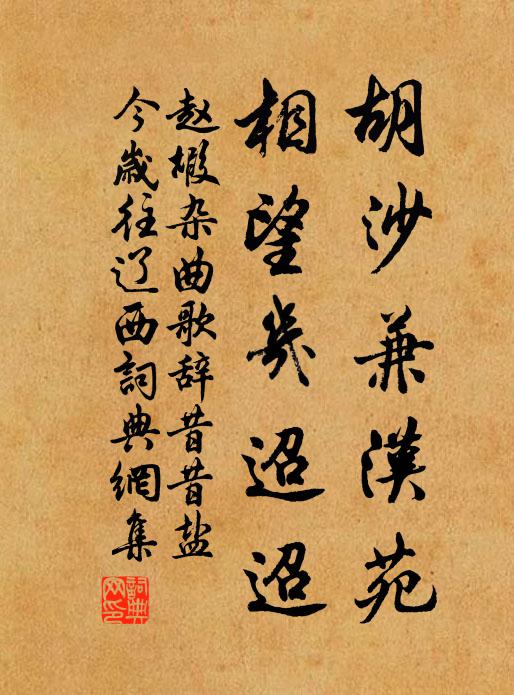 胡沙兼漢苑
相望幾迢迢
赵嘏杂曲歌辞昔昔盐
今歲往辽西詞典網集
詞典網印